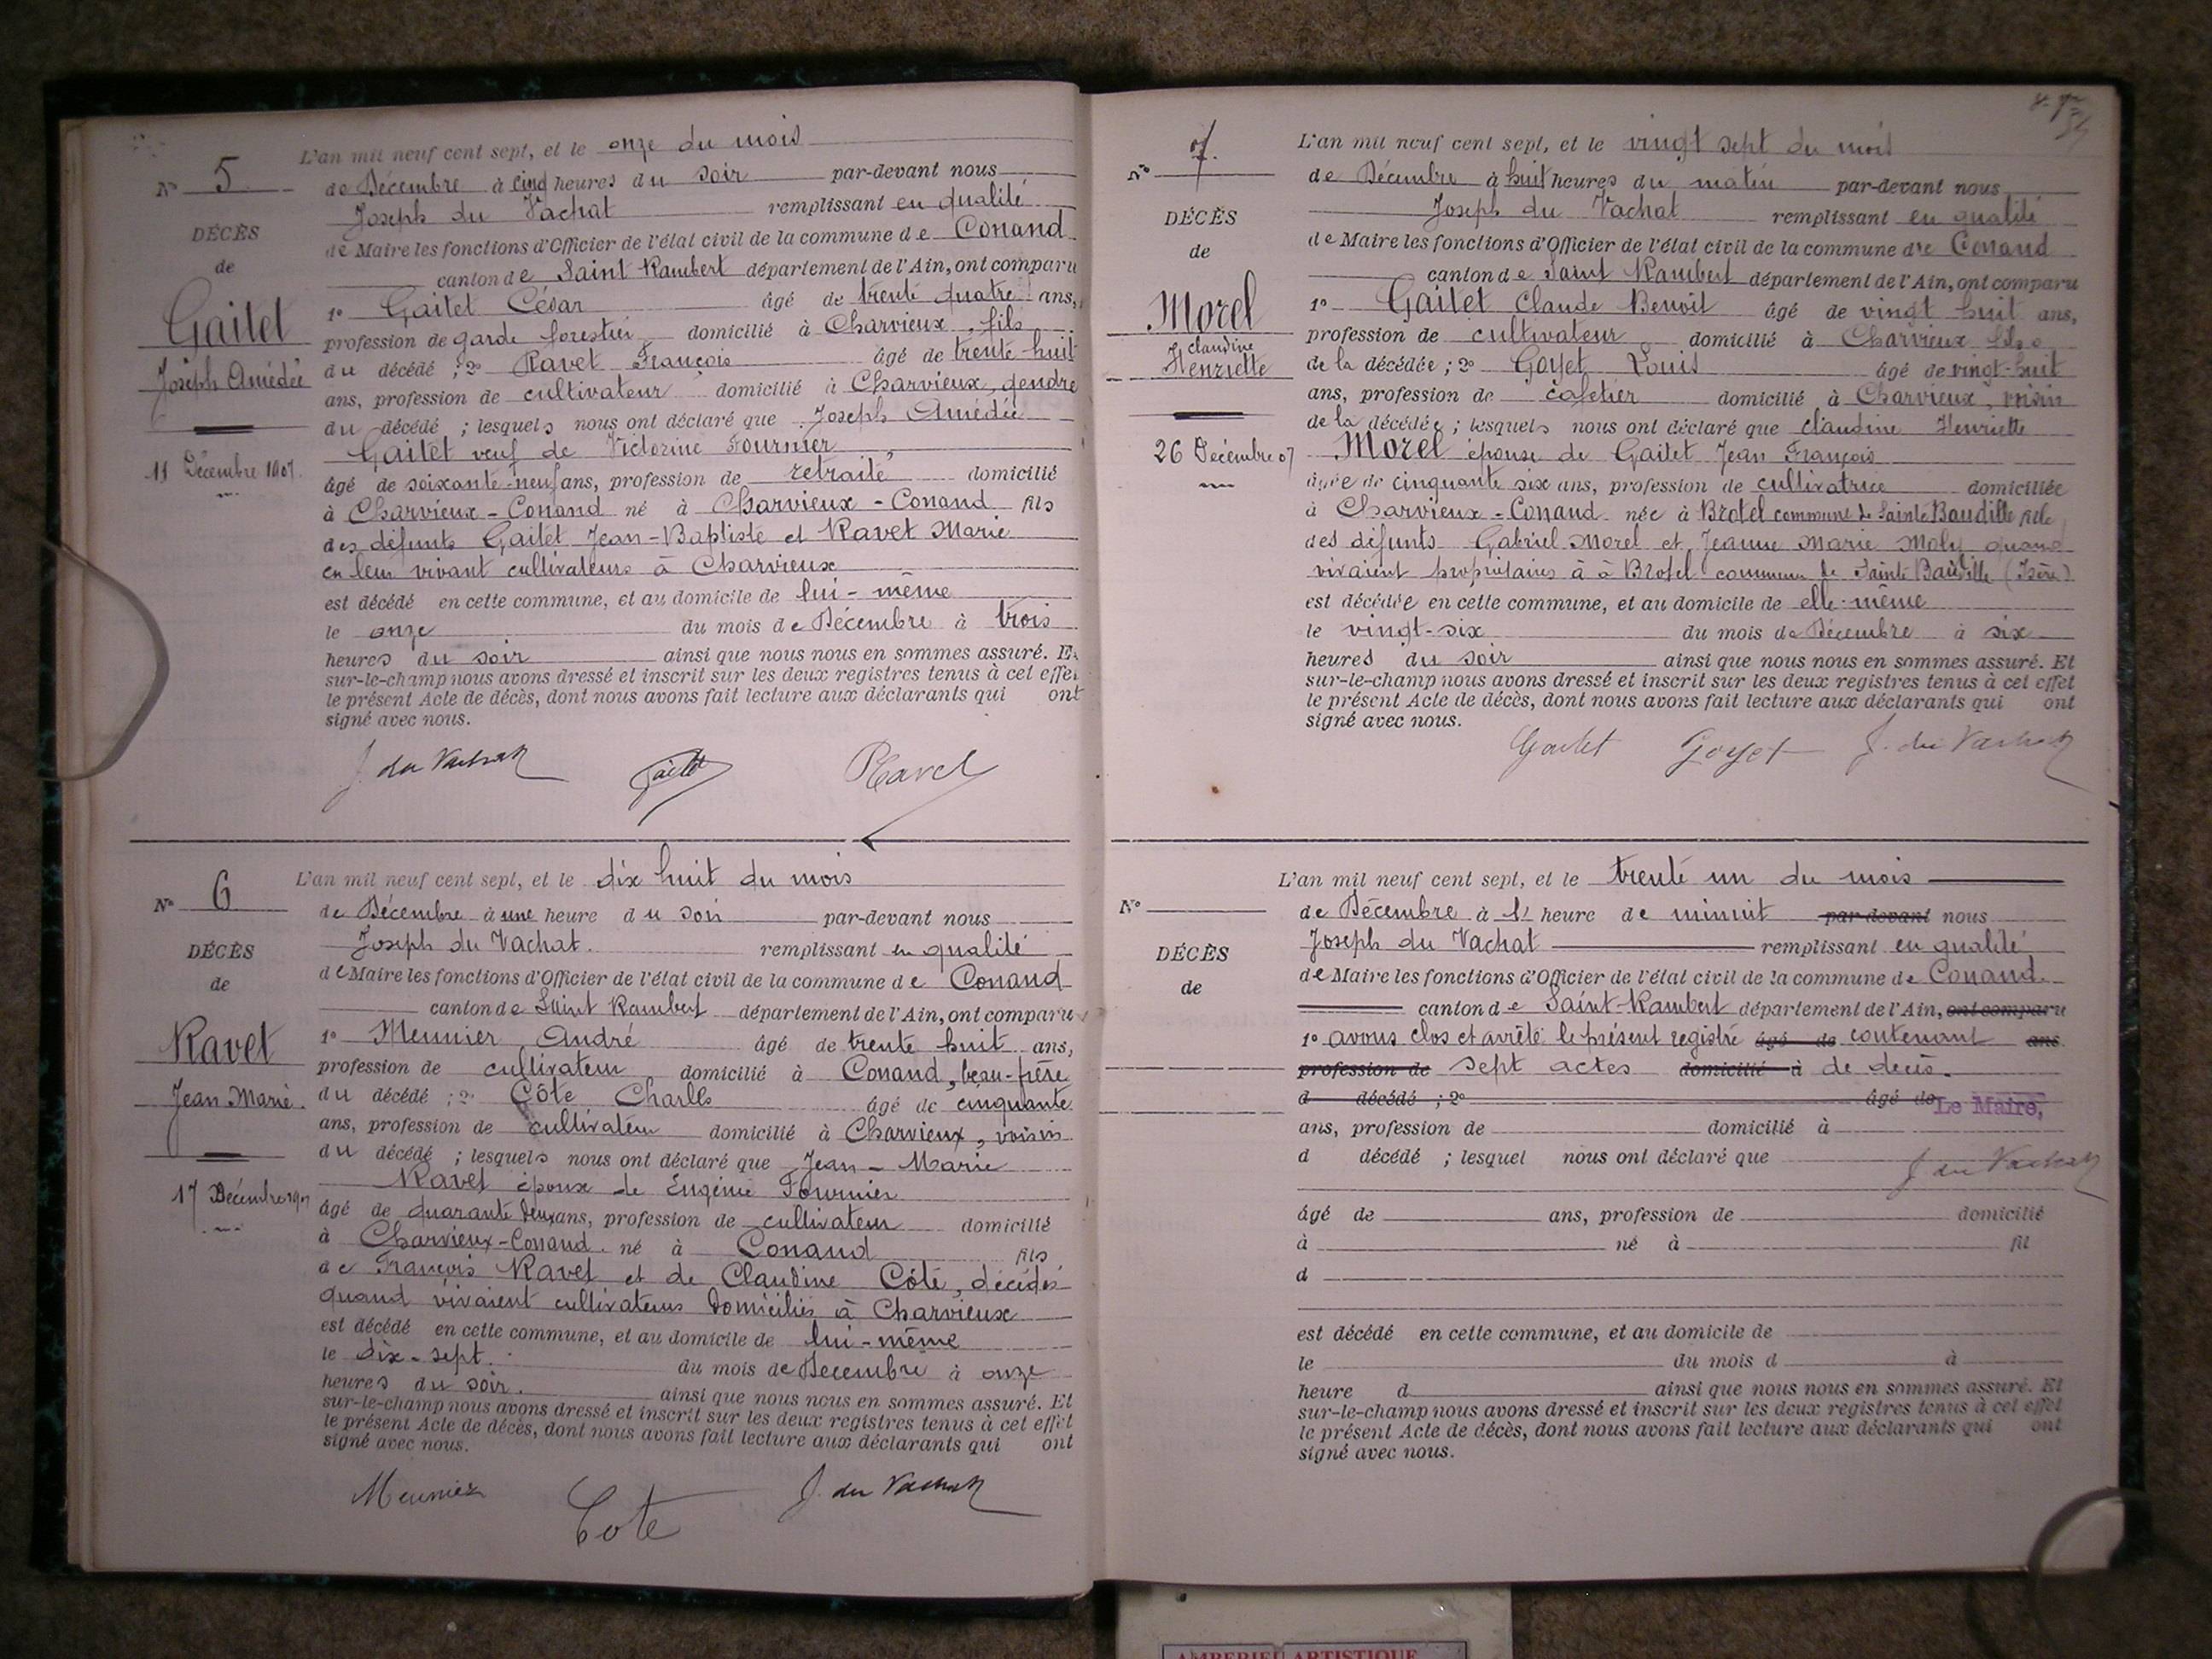 L'an mil neuf cent sept, et le onze du mois
N° 5
de Décembre à cinq heures du soir par-devant nous
Joseph du Vachat remplissant en qualité
DÉCÈS
de Maire les fonctions d'Officier de l'état civil de la commune de Conand
de
canton de Saint Rambert département de l'Ain, ont comparu
Gaitet
1° Gaitet César âgé de trente quatre ans,
profession de garde forestier domicilié à Charvieux, fils
Joseph Amédée
du décédé ; 2° Ravet François âgé de trente-huit
ans, profession de cultivateur domicilié à Charvieux, gendre
du décédé ; lesquels nous ont déclaré que Joseph Amédée
Gaitet veuf de Victorine Fournier
11 Décembre 1907.
âgé de soixante-neuf ans, profession de retraité domicilié
à Charvieux - Conand né à Charvieux - Conand fils
des défunts Gaitet Jean-Baptiste et Ravet Marie
en leur vivant cultivateurs à Charvieux
est décédé en cette commune, et au domicile de lui-même
le onze du mois de Décembre à trois
heures du soir ainsi que nous nous en sommes assuré. Et
sur-le-champ nous avons dressé et inscrit sur les deux registres tenus à cet effet
le présent Acte de décès, dont nous avons fait lecture aux déclarants qui ont
signé avec nous.
J. du Vachat Gaitet Ravet
L'an mil neuf cent sept, et le dix huit du mois
N° 6
de Décembre à une heure du soir par-devant nous
Joseph du Vachat. remplissant en qualité
DÉCÈS
de Maire les fonctions d'Officier de l'état civil de la commune de Conand
de
canton de Saint Rambert département de l'Ain, ont comparu
Ravet
1° Meunier André âgé de trente huit ans,
profession de cultivateur domicilié à Conand, beau-frère
Jean Marie.
du décédé ; 2° Côte Charles âgé de cinquante
ans, profession de cultivateur domicilié à Charvieux, voisin
du décédé ; lesquels nous ont déclaré que Jean-Marie
Ravet époux de Eugénie Fournier
17 Décembre 1907
âgé de quarante deux ans, profession de cultivateur domicilié
à Charvieux-Conand. né à Conand fils
de François Ravet et de Claudine Côte, décédés
quand vivaient cultivateurs domiciliés à Charvieux
est décédé en cette commune, et au domicile de lui-même
le dix-sept. du mois de Decembre à onze
heures du soir. ainsi que nous nous en sommes assuré. Et
sur-le-champ nous avons dressé et inscrit sur les deux registres tenus à cet effet
le présent Acte de décès, dont nous avons fait lecture aux déclarants qui ont
signé avec nous.
Meunier Cote J. du Vachat
L'an mil neuf cent sept, et le vingt sept du mois
N° 7.
de Décembre à huit heures du matin par-devant nous
Joseph du Vachat remplissant en qualité
DÉCÈS
de Maire les fonctions d'Officier de l'état civil de la commune de Conand
de
canton de Saint Rambert département de l'Ain, ont comparu
Morel
1° Gaitet Claude Benoit âgé de vingt huit ans,
profession de cultivateur domicilié à Charvieux fils
claudine
Henriette
de la décédée ; 2° Goyet Louis âgé de vingt-huit
ans, profession de cafetier domicilié à Charvieux, voisin
de la décédée ; lesquels nous ont déclaré que claudine Henriette
26 Décembre 07
Morel épouse de Gaitet Jean François
âgée de cinquante six ans, profession de cultivatrice domiciliée
à Charvieux - Conand née à Brotel commune de Sainte Baudille fille
des défunts Gabriel Morel et Jeanne Marie Moly quand
vivaient propriétaires à à Brotel commune de Sainte Baudille (Isère)
est décédée en cette commune, et au domicile de elle-même
le vingt-six du mois de Décembre à six
heures du soir ainsi que nous nous en sommes assuré. Et
sur-le-champ nous avons dressé et inscrit sur les deux registres tenus à cet effet
le présent Acte de décès, dont nous avons fait lecture aux déclarants qui ont
signé avec nous.
Gaitet Goyet J. du Vachat
L'an mil neuf cent sept, et le trente un du mois
N°
de Décembre à heure de minuit par-devant nous
Joseph du Vachat remplissant en qualité
DÉCÈS
de Maire les fonctions d'Officier de l'état civil de la commune de Conand.
de
canton de Saint-Rambert département de l'Ain, ont comparu
1° avons clos et arrêté le présent registre âgé de contenant ans
profession de sept actes domicilié à de décès.
d décédé ; 2° âgé de Le Maire,
ans, profession de domicilié à
d décédé ; lesquel nous ont déclaré que
J. du Vachat
âgé de ans, profession de domicilié
à né à fil
d
est décédé en cette commune, et au domicile de
le du mois d à
heure d ainsi que nous nous en sommes assuré. Et
sur-le-champ nous avons dressé et inscrit sur les deux registres tenus à cet effet
le présent Acte de décès, dont nous avons fait lecture aux déclarants qui ont
signé avec nous.
AMBERIEU ARTISTIQUE